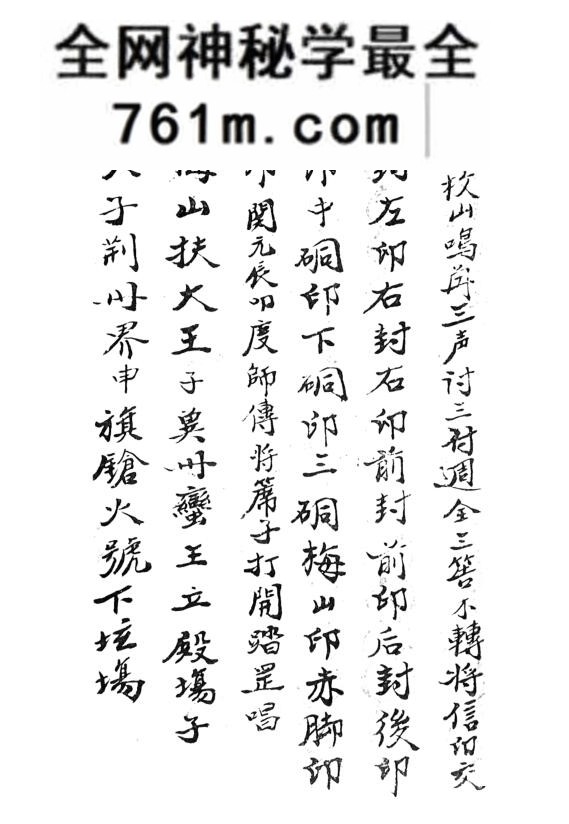 全网神秘学最全
761m.com
山鳴 三声讨三 週全三筶不轉將信印交
封左印右封右印前封前印后封後印
印中硐印下硐印三硐梅山印赤脚印
開元長叩度師傳将 子打開踏罡唱
梅山扶大王子 州蠻王立殿塲子
子荆州界申旗鎗火號下坛塲